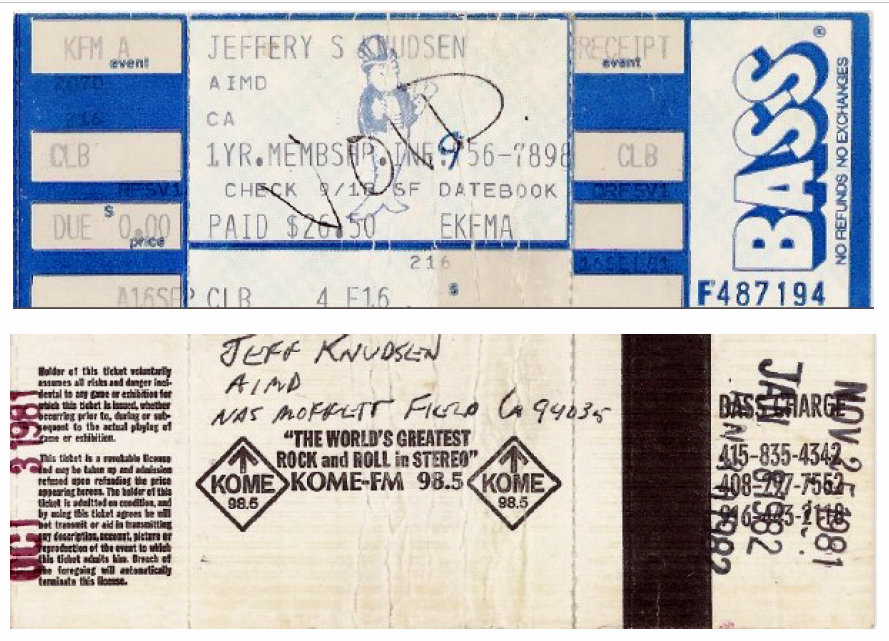 KFM A
event
JEFFERY S KNUDSEN
RECEIPT
event
BASS®
NO REFUNDS NO EXCHANGES
AIMD
216
CA
CLB
1YR.MEMBSHP.INF. 9 56-7898
CLB
VOID
CHECK 9/18 SF DATEBOOK
DUE $ 0.00
price
PAID $26.50 EKFMA
216
A16SEP CLB 4 F16 $
F487194
JEFF KNUDSEN
AIMD
NAS MOFFETT FIELD CA 94035
Holder of this ticket voluntarily
assumes all risks and danger inci-
dental to any game or exhibition for
which this ticket is issued, whether
occurring prior to, during or sub-
sequent to the actual playing of
game or exhibition.
This ticket is a revokable license
and may be taken up and admission
refused upon refunding the price
appearing hereon. The holder of this
ticket is admitted on condition, and
by using this ticket agrees he will
not transmit or aid in transmitting
any description, account, picture or
reproduction of the event to which
this ticket admits him. Breach of
the foregoing will automatically
terminate this license.
OCT 3 1981
"THE WORLD'S GREATEST
ROCK and ROLL in STEREO"
KOME-FM 98.5
KOME
98.5
KOME
98.5
BASS CHARGE
415-835-4342
408-297-7552
NOV 25 1981
JAN 1982
1982